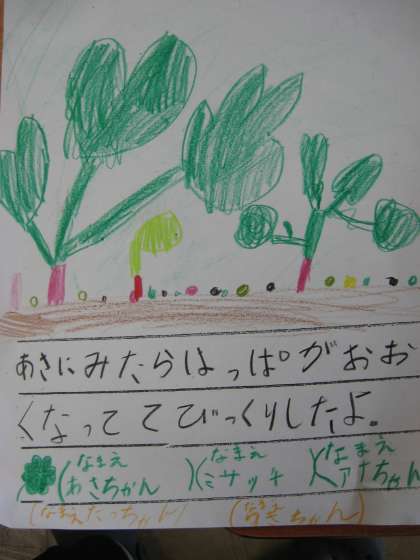 あさにみたらはっぱがおお
くなっててびっくりしたよ。
なまえ なまえ なまえ
(あさちかん )(ミサッチ )(アナちゃん
(なまえたっちゃん) ちゃん)